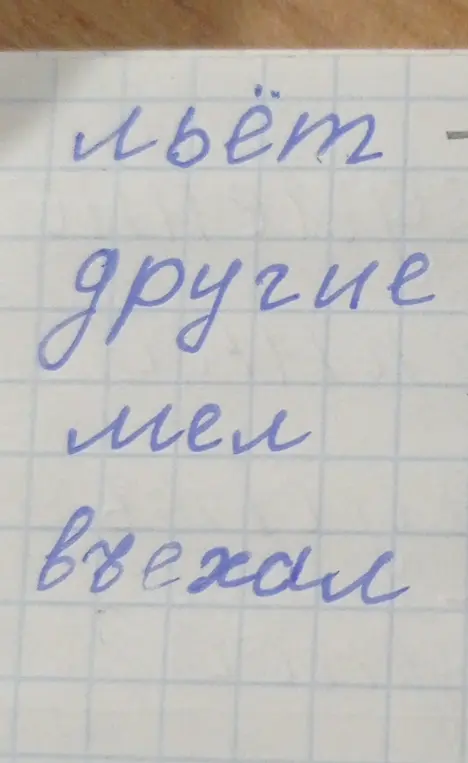 льёт -
другие
мел
въехал